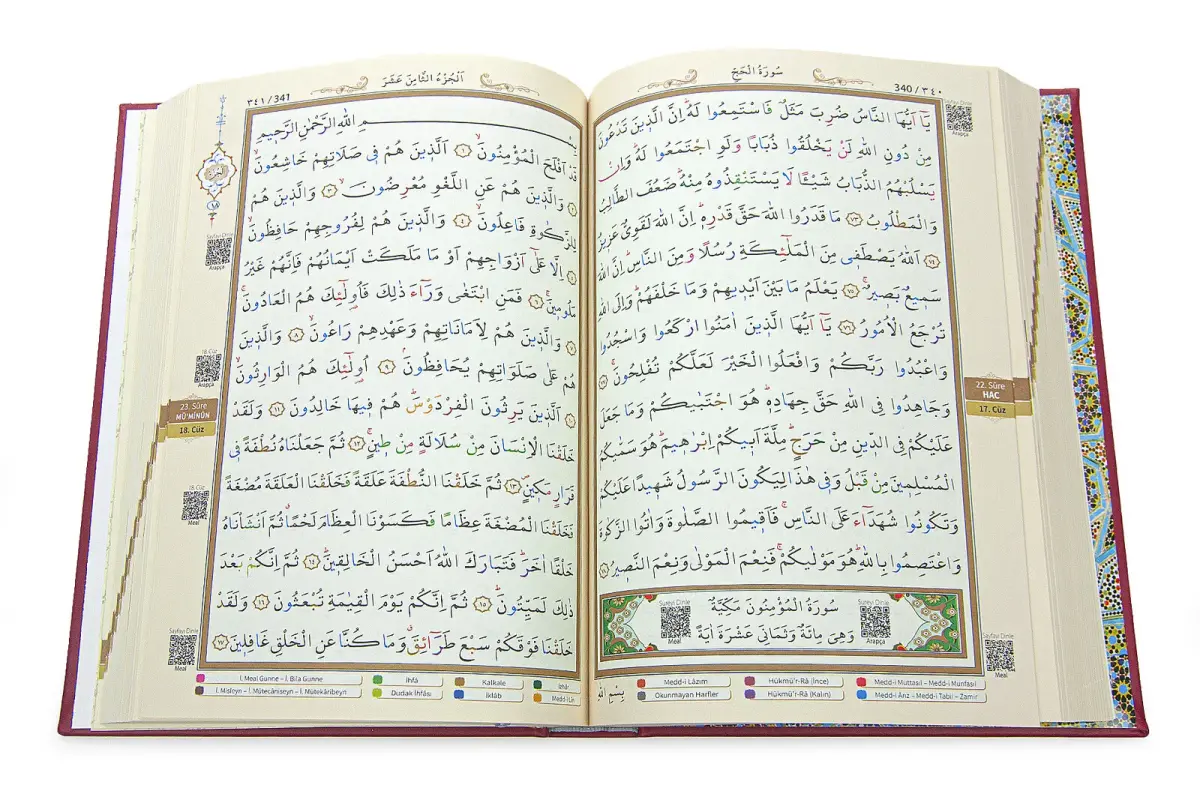 سُورَةُ الْحَجِّ
340 / ٣٤٠
يَٓا اَيُّهَا النَّاسُ ضُرِبَ مَثَلٌ فَاسْتَمِعُوا لَهُۜ اِنَّ الَّذ۪ينَ تَدْعُونَ
مِنْ دُونِ اللّٰهِ لَنْ يَخْلُقُوا ذُبَابًا وَلَوِ اجْتَمَعُوا لَهُۜ وَاِنْ
يَسْلُبْهُمُ الذُّبَابُ شَيْـًٔا لَا يَسْتَنْقِذُوهُ مِنْهُۜ ضَعُفَ الطَّالِبُ
وَالْمَطْلُوبُ ﴿٧٣﴾ مَا قَدَرُوا اللّٰهَ حَقَّ قَدْرِه۪ۜ اِنَّ اللّٰهَ لَقَوِيٌّ عَز۪يزٌ
﴿٧٤﴾ اَللّٰهُ يَصْطَف۪ي مِنَ الْمَلٰٓئِكَةِ رُسُلًا وَمِنَ النَّاسِۜ اِنَّ اللّٰهَ
سَم۪يعٌ بَص۪يرٌۚ ﴿٧٥﴾ يَعْلَمُ مَا بَيْنَ اَيْد۪يهِمْ وَمَا خَلْفَهُمْۜ وَاِلَى اللّٰهِ
تُرْجَعُ الْاُمُورُ ﴿٧٦﴾ يَٓا اَيُّهَا الَّذ۪ينَ اٰمَنُوا ارْكَعُوا وَاسْجُدُوا
وَاعْبُدُوا رَبَّكُمْ وَافْعَلُوا الْخَيْرَ لَعَلَّكُمْ تُفْلِحُونَۚ ﴿٧٧﴾
وَجَاهِدُوا فِي اللّٰهِ حَقَّ جِهَادِه۪ۜ هُوَ اجْتَبٰيكُمْ وَمَا جَعَلَ
عَلَيْكُمْ فِي الدّ۪ينِ مِنْ حَرَجٍۜ مِلَّةَ اَب۪يكُمْ اِبْرٰه۪يمَۜ هُوَ سَمّٰيكُمُ
الْمُسْلِم۪ينَ مِنْ قَبْلُ وَف۪ي هٰذَا لِيَكُونَ الرَّسُولُ شَه۪يدًا عَلَيْكُمْ
وَتَكُونُوا شُهَدَٓاءَ عَلَى النَّاسِۚ فَاَق۪يمُوا الصَّلٰوةَ وَاٰتُوا الزَّكٰوةَ
وَاعْتَصِمُوا بِاللّٰهِۜ هُوَ مَوْلٰيكُمْۚ فَنِعْمَ الْمَوْلٰى وَنِعْمَ النَّص۪يرُ ﴿٧٨﴾
سُورَةُ الْمُؤْمِنُونَ مَكِّيَّةٌ
وَهِيَ مِائَةٌ وَثَمَانِيَ عَشْرَةَ اٰيَةً
Sureyi Dinle
Meal
Sureyi Dinle
Arapça
Sayfayı Dinle
Arapça
22. Sûre
HAC
17. Cüz
Sayfayı Dinle
Meal
Medd-i Lâzım
Hükmü'r-Râ (İnce)
Medd-i Muttasıl – Medd-i Munfasıl
Okunmayan Harfler
Hükmü'r-Râ (Kalın)
Medd-i Ârız – Medd-i Tabii – Zamir
اَلْجُزْءُ الثَّامِنَ عَشَرَ
٣٤١ / 341
بِسْمِ اللّٰهِ الرَّحْمٰنِ الرَّح۪يمِ
قَدْ اَفْلَحَ الْمُؤْمِنُونَۙ ﴿١﴾ اَلَّذ۪ينَ هُمْ ف۪ي صَلَاتِهِمْ خَاشِعُونَۙ
﴿٢﴾ وَالَّذ۪ينَ هُمْ عَنِ اللَّغْوِ مُعْرِضُونَۙ ﴿٣﴾ وَالَّذ۪ينَ هُمْ
لِلزَّكٰوةِ فَاعِلُونَۙ ﴿٤﴾ وَالَّذ۪ينَ هُمْ لِفُرُوجِهِمْ حَافِظُونَۙ
﴿٥﴾ اِلَّا عَلٰٓى اَزْوَاجِهِمْ اَوْ مَا مَلَكَتْ اَيْمَانُهُمْ فَاِنَّهُمْ غَيْرُ
مَلُوم۪ينَۚ ﴿٦﴾ فَمَنِ ابْتَغٰى وَرَٓاءَ ذٰلِكَ فَاُو۬لٰٓئِكَ هُمُ الْعَادُونَۚ
﴿٧﴾ وَالَّذ۪ينَ هُمْ لِاَمَانَاتِهِمْ وَعَهْدِهِمْ رَاعُونَۙ ﴿٨﴾ وَالَّذ۪ينَ
هُمْ عَلٰى صَلَوَاتِهِمْ يُحَافِظُونَۢ ﴿٩﴾ اُو۬لٰٓئِكَ هُمُ الْوَارِثُونَۙ
﴿١٠﴾ اَلَّذ۪ينَ يَرِثُونَ الْفِرْدَوْسَۜ هُمْ ف۪يهَا خَالِدُونَ ﴿١١﴾ وَلَقَدْ
خَلَقْنَا الْاِنْسَانَ مِنْ سُلَالَةٍ مِنْ ط۪ينٍۚ ﴿١٢﴾ ثُمَّ جَعَلْنَاهُ نُطْفَةً ف۪ي
قَرَارٍ مَك۪ينٍۖ ﴿١٣﴾ ثُمَّ خَلَقْنَا النُّطْفَةَ عَلَقَةً فَخَلَقْنَا الْعَلَقَةَ مُضْغَةً
فَخَلَقْنَا الْمُضْغَةَ عِظَامًا فَكَسَوْنَا الْعِظَامَ لَحْمًاۗ ثُمَّ اَنْشَأْنَاهُ
خَلْقًا اٰخَرَۜ فَتَبَارَكَ اللّٰهُ اَحْسَنُ الْخَالِق۪ينَۜ ﴿١٤﴾ ثُمَّ اِنَّكُمْ بَعْدَ
ذٰلِكَ لَمَيِّتُونَۜ ﴿١٥﴾ ثُمَّ اِنَّكُمْ يَوْمَ الْقِيٰمَةِ تُبْعَثُونَ ﴿١٦﴾ وَلَقَدْ
خَلَقْنَا فَوْقَكُمْ سَبْعَ طَرَٓائِقَۗ وَمَا كُنَّا عَنِ الْخَلْقِ غَافِل۪ينَ ﴿١٧﴾
Sayfayı Dinle
Arapça
18. Cüz
Arapça
23. Sûre
MÜ'MİNÛN
18. Cüz
18. Cüz
Meal
Sayfayı Dinle
Meal
İ. Meal Gunne – İ. Bila Gunne
İhfâ
Kalkale
İzhâr
İ. Misleyn – İ. Mütecâniseyn – İ. Mütekâribeyn
Dudak İhfâsı
İklâb
Medd-i Lîn